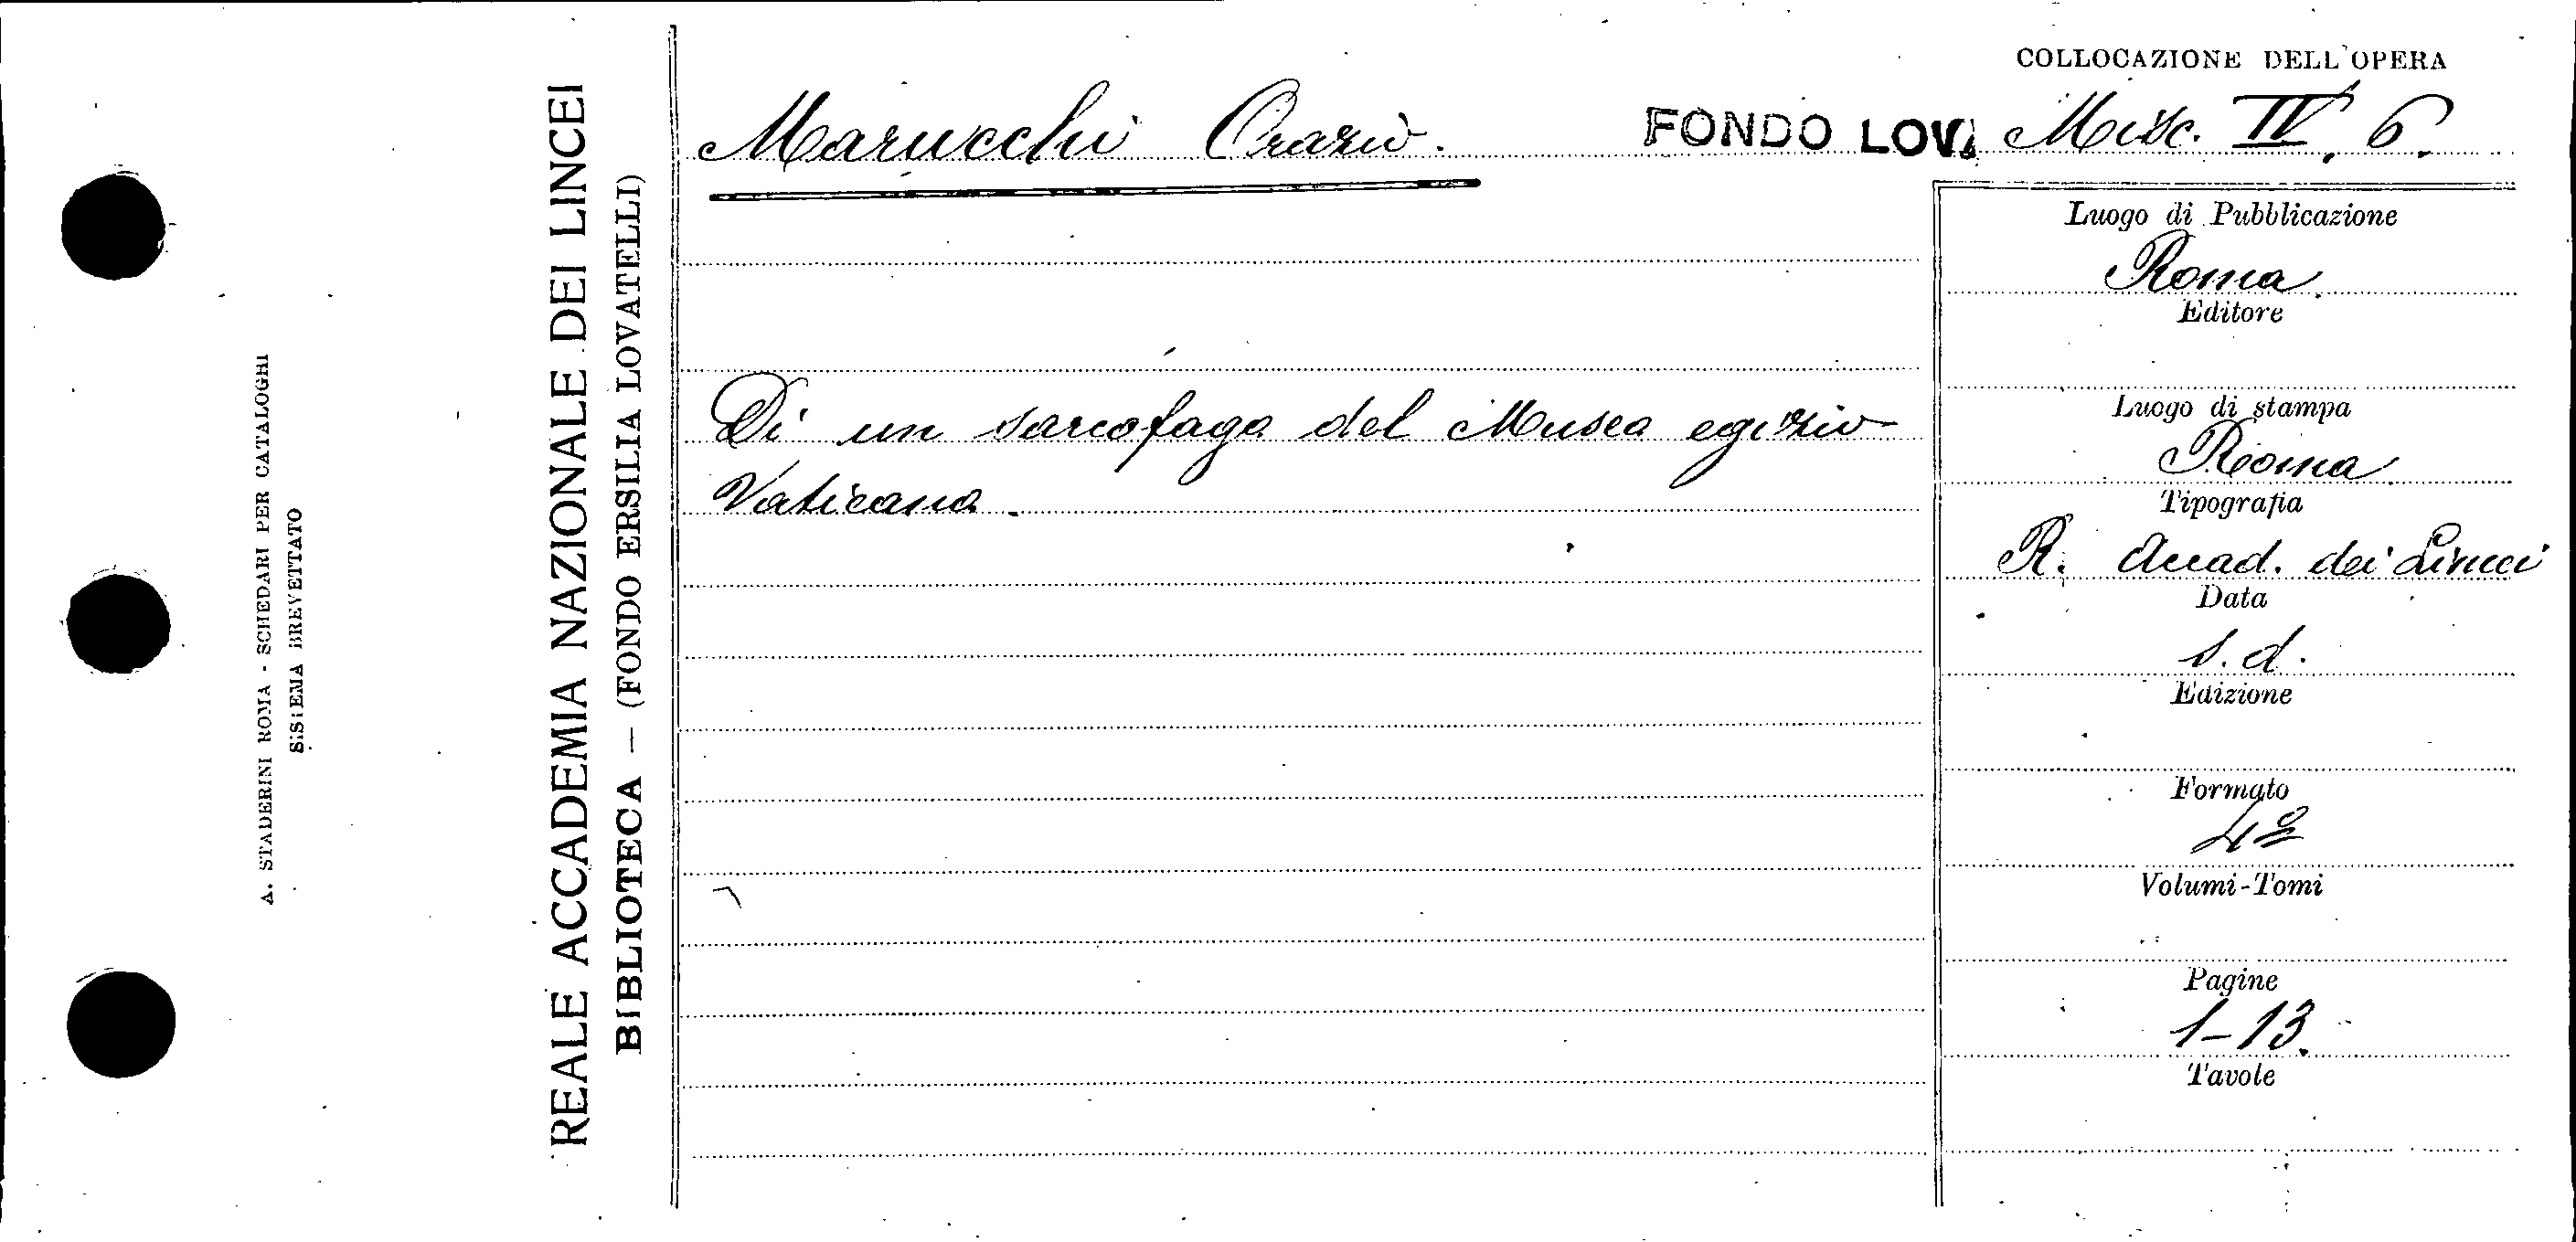 A. STADERINI ROMA - SCHEDARI PER CATALOGHI
SISTEMA BREVETTATO
REALE ACCADEMIA NAZIONALE DEI LINCEI
BIBLIOTECA — (FONDO ERSILIA LOVATELLI)
Marucchi Orazio.
Di un sarcofago del Museo egizio
Vaticano.
COLLOCAZIONE DELL'OPERA
FONDO LOV. Misc. IV. 6.
Luogo di Pubblicazione
Roma
Editore
Luogo di stampa
Roma
Tipografia
R. Accad. dei Lincei
Data
s. d.
Edizione
Formato
4º
Volumi-Tomi
Pagine
1-13.
Tavole